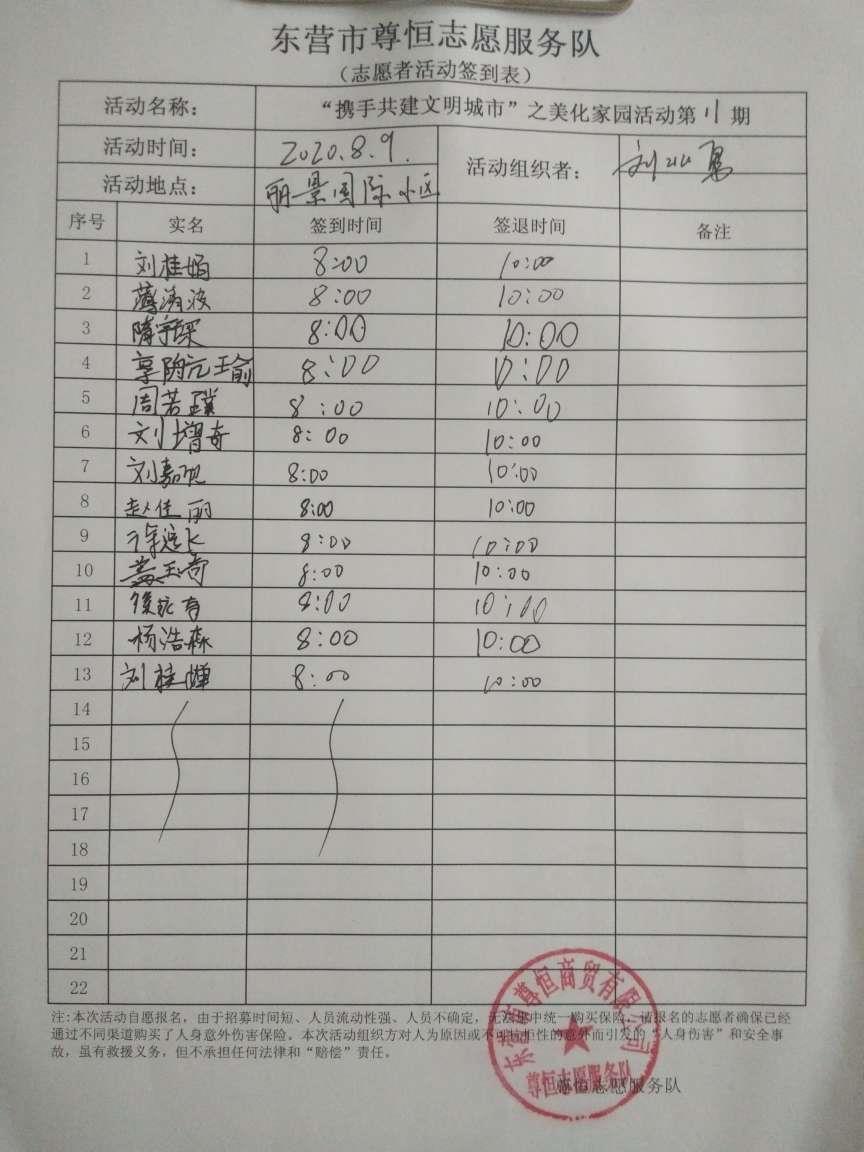 东营市尊恒志愿服务队
（志愿者活动签到表）
活动名称： “携手共建文明城市”之美化家园活动第11期
活动时间： 2020.8.9. 活动组织者： 刘
活动地点： 丽景国际小区
序号 实名 签到时间 签退时间 备注
1 刘桂娟 8:00 10:00
2 薄 波 8:00 10:00
3 隋 8:00 10:00
4 8:00 10:00
5 周若 8:00 10:00
6 刘增奇 8:00 10:00
7 刘嘉 8:00 10:00
8 赵佳丽 8:00 10:00
9 徐 飞 8:00 10:00
10 玉奇 8:00 10:00
11 有 8:00 10:00
12 杨浩森 8:00 10:00
13 刘桂 8:00 10:00
14
15
16
17
18
19
20
21
22
注:本次活动自愿报名，由于招募时间短、人员流动性强、人员不确定，无法集中统一购买保险，请报名的志愿者确保已经
通过不同渠道购买了人身意外伤害保险。本次活动组织方对人为原因或不可抗拒性的意外而引发的“人身伤害”和安全事
故，虽有救援义务，但不承担任何法律和“赔偿”责任。
尊恒志愿服务队
东营 尊恒商贸有限公司
尊恒志愿服务队